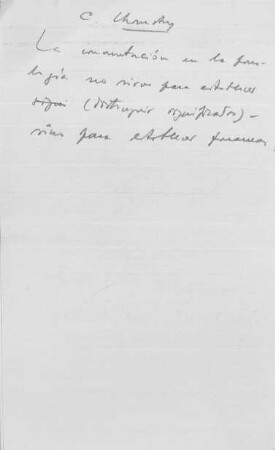 C. Chomsky
La conmutación en la fono-
logía no sirve para establecer
signi (distinguir significados) -
sino para establecer fonemas